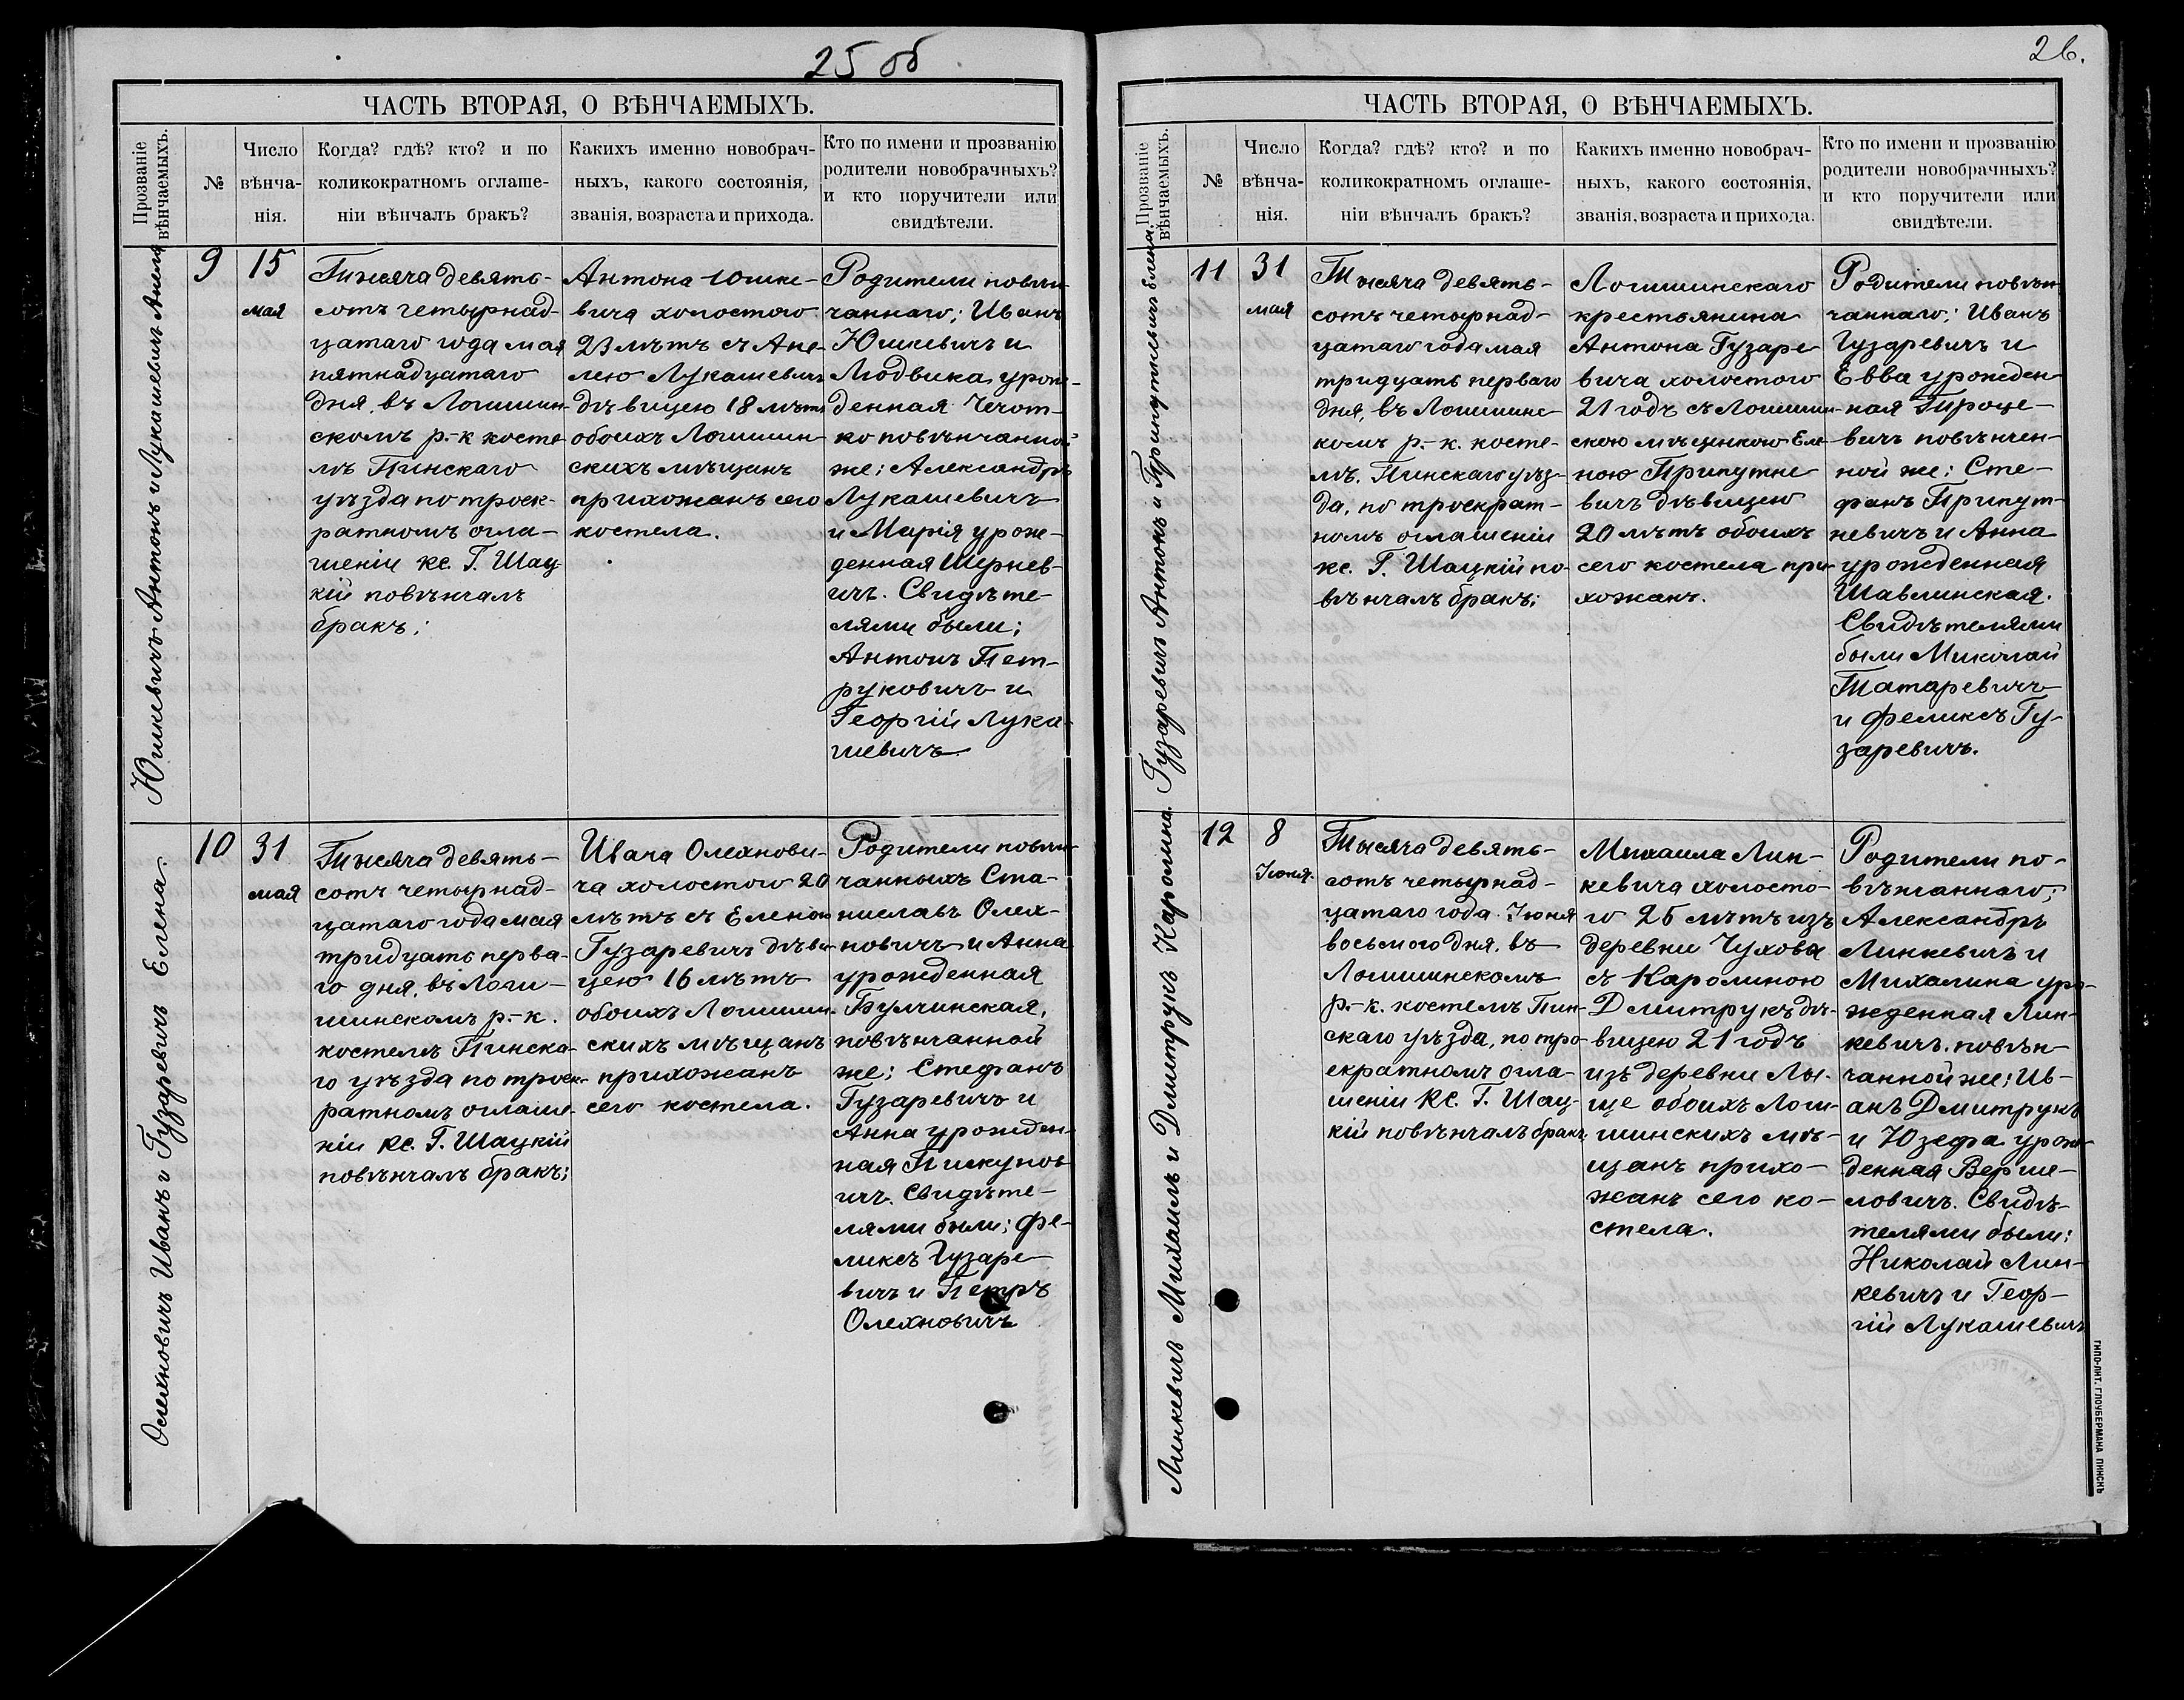 25 об
ЧАСТЬ ВТОРАЯ, О ВѢНЧАЕМЫХЪ.
Прозваніе
вѣнчаемыхъ.
№
Число
вѣнча-
нія.
Когда? гдѣ? кто? и по
коликократномъ оглаше-
ніи вѣнчалъ бракъ?
Какихъ именно новобрач-
ныхъ, какого состоянія,
званія, возраста и прихода.
Кто по имени и прозванію
родители новобрачныхъ?
и кто поручители или
свидѣтели.
Юшкевичъ Антонъ и Лукашевичъ Анеля
9
15
мая
Тысяча девять-
сотъ четырнад-
цатаго года мая
пятнадцатаго
дня, въ Логишин-
скомъ р.-к косте-
лѣ Пинскаго
уѣзда по троек-
ратномъ огла-
шеніи кс. Г. Шац-
кій повѣнчалъ
бракъ;
Антона Юшке-
вича холостого
23 лѣтъ съ Ане-
лею Лукашевичъ
дѣвицею 18 лѣтъ
обоихъ Логишин-
скихъ мѣщанъ
прихожанъ сего
костела.
Родители повѣн-
чаннаго; Иванъ
Юшкевичъ и
Людвика урож-
денная Чечот-
ко повѣнчанной
же; Александръ
Лукашевичъ
и Марія урож-
денная Шернев-
ичъ. Свидѣте-
лями были;
Антонъ Пет-
руковичъ и
Георгій Лука-
шевичъ.
Олехновичъ Иванъ и Гузаревичъ Елена
10
31
мая
Тысяча девять-
сотъ четырнад-
цатаго года мая
тридцать перва-
го дня, въ Логи-
шинскомъ р.-к.
костелѣ Пинска-
го уѣзда по троек-
ратномъ оглаше-
ніи кс. Г. Шацкій
повѣнчалъ бракъ;
Ивана Олехнови-
ча холостого 20
лѣтъ съ Еленою
Гузаревичъ дѣви-
цею 16 лѣтъ
обоихъ Логишин-
скихъ мѣщанъ
прихожанъ
сего костела.
Родители повѣн-
чанныхъ Ста-
ниславъ Олех-
новичъ и Анна
урожденная
Булчинская,
повѣнчанной
же; Стефанъ
Гузаревичъ и
Анна урожден-
ная Пискунов-
ичъ. Свидѣте-
лями были; Фе-
ликсъ Гузаре-
вичъ и Петръ
Олехновичъ
26.
ЧАСТЬ ВТОРАЯ, О ВѢНЧАЕМЫХЪ.
Прозваніе
вѣнчаемыхъ.
№
Число
вѣнча-
нія.
Когда? гдѣ? кто? и по
коликократномъ оглаше-
ніи вѣнчалъ бракъ?
Какихъ именно новобрач-
ныхъ, какого состоянія,
званія, возраста и прихода.
Кто по имени и прозванію
родители новобрачныхъ?
и кто поручители или
свидѣтели.
Гузаревичъ Антонъ и Припутневичъ Елена.
11
31
мая
Тысяча девять-
сотъ четырнад-
цатаго года мая
тридцать перваго
дня, въ Логишинс-
комъ р.-к. косте-
лѣ. Пинскаго уѣз-
да, по троекрат-
номъ оглашеніи
кс. Г. Шацкій по-
вѣнчалъ бракъ;
Логишинскаго
крестьянина
Антона Гузаре-
вича холостого
21 годъ съ Логишин-
скою мѣщанкою Еле-
ною Припутне-
вичъ дѣвицею
20 лѣтъ обоихъ
сего костела при-
хожанъ.
Родители повѣн-
чаннаго; Иванъ
Гузаревичъ и
Евва урожден-
ная Проце-
вичъ повѣнчен-
ной же; Сте-
фанъ Припут-
невичъ и Анна
урожденная
Шавлинская.
Свидѣтелями
были Миколай
Татаревичъ
и Феликсъ Гу-
заревичъ.
Линкевичъ Михаилъ и Дмитрукъ Каролина.
12
8
Іюня.
Тысяча девять-
сотъ четырнад-
цатаго года Іюня
восьмого дня, въ
Логишинскомъ
р.-к. костелѣ Пин-
скаго уѣзда, по тро-
екратномъ огла-
шеніи кс. Г. Шац-
кій повѣнчалъ бракъ;
Михаила Лин-
кевича холосто-
го 25 лѣтъ изъ
деревни Чухова
съ Каролиною
Дмитрукъ дѣ-
вицею 21 годъ
изъ деревни Лы-
ще обоихъ Логи-
шинскихъ мѣ-
щанъ прихо-
жанъ сего ко-
стела.
Родители по-
вѣнчаннаго;
Александръ
Линкевичъ и
Михалина уро-
жденная Лин-
кевичъ. повѣн-
чанной же; Ив-
анъ Дмитрукъ
и Юзефа урож-
денная Верше-
ловичъ. Свидѣ-
телями были;
Николай Лин-
кевичъ и Геор-
гій Лукашевичъ
ТИПО-ЛИТ. ГЛОУБЕРМАНА ПИНСКЪ